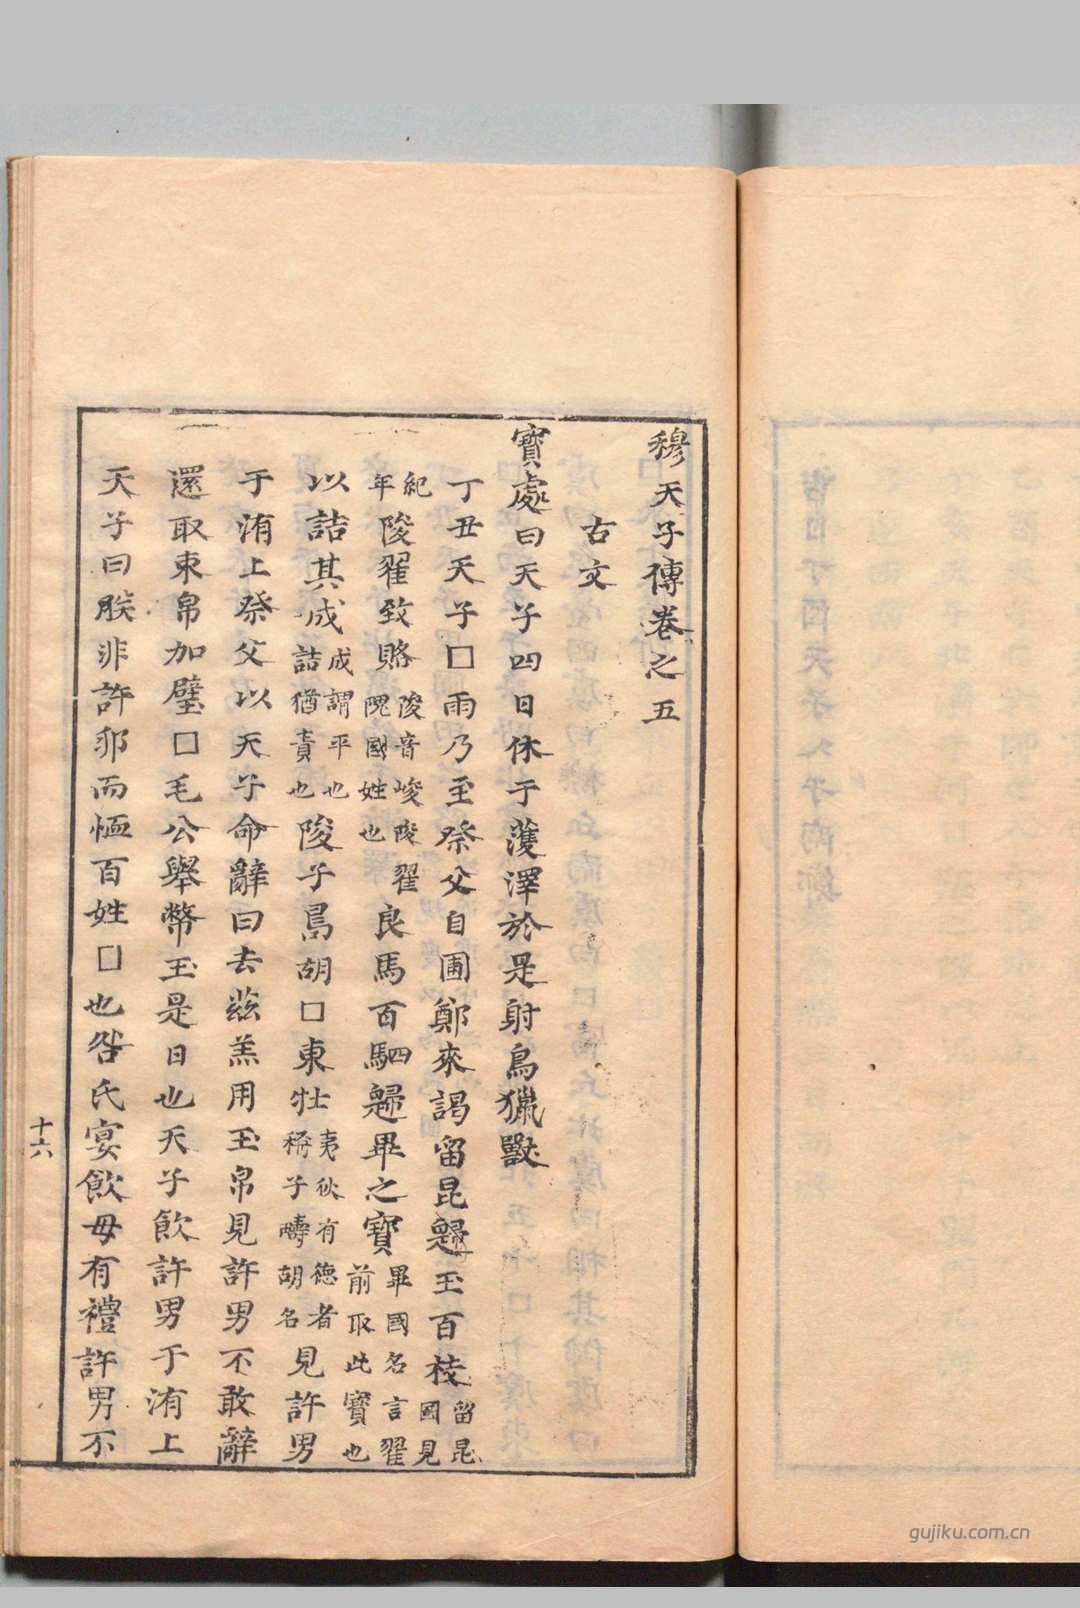 穆天子傳卷之五
古文
寶處曰天子四日休于濩澤於是射鳥獵獸
丁丑天子□雨乃至祭父自圃鄭來謁留昆歸玉百枝留昆國見
紀年陖翟致賂陖音峻陖翟隗國姓也良馬百駟歸畢之寶畢國名言翟前取此寶也
以詰其成成謂平也詰猶責也陖子鳥胡□東牡夷狄有德者稱子疇胡名見許男
于洧上祭父以天子命辭曰去茲羔用玉帛見許男不敢辭
還取束帛加璧□毛公舉幣玉是日也天子飲許男于洧上
天子曰朕非許邦而恤百姓□也咎氏宴飲毋有禮許男不
十六
gujiku.com.cn